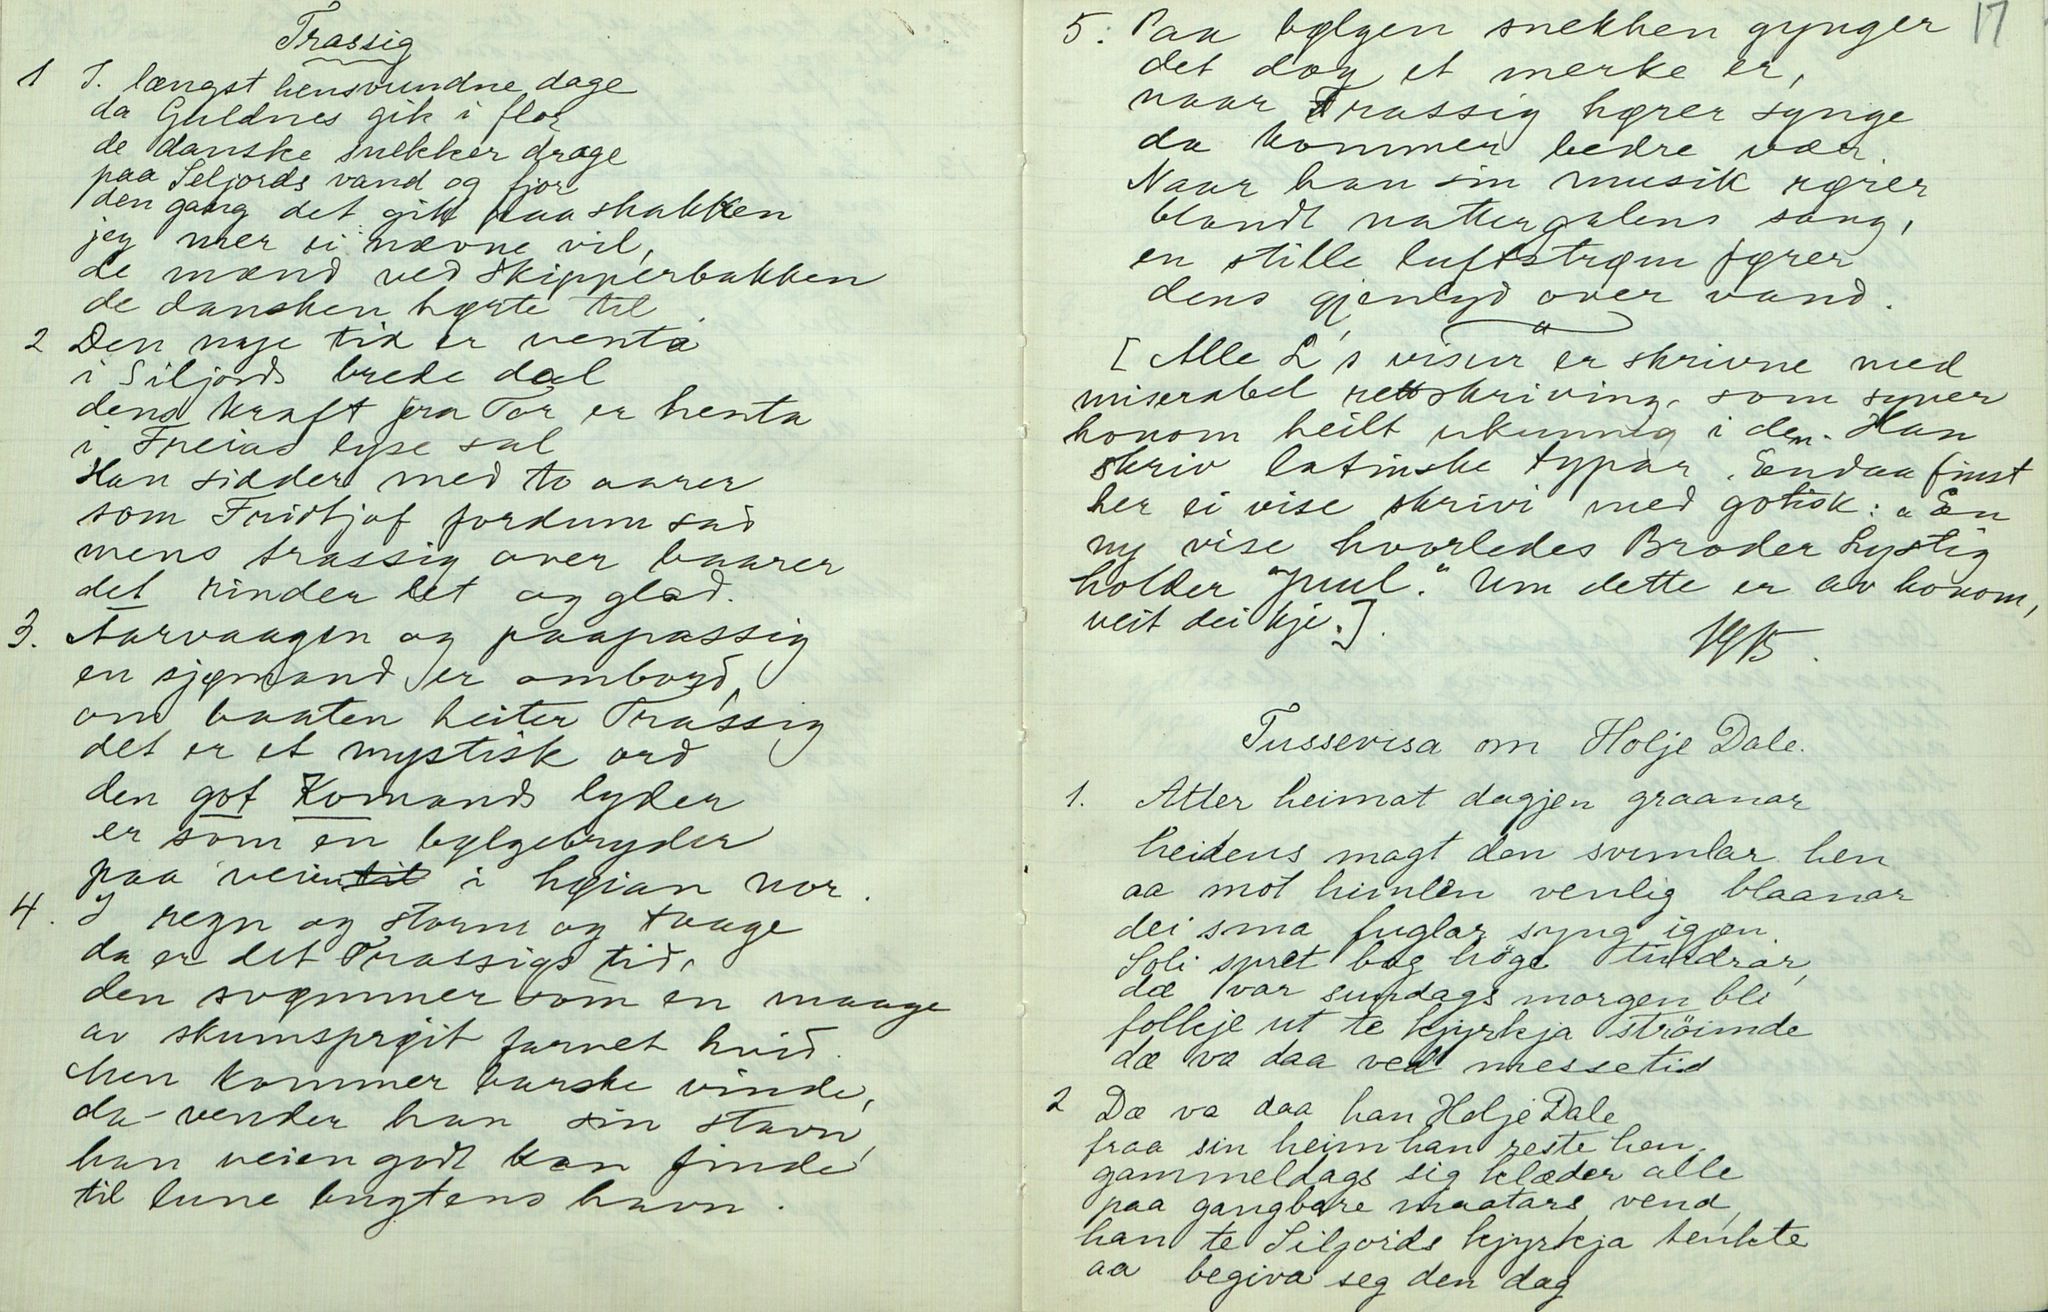 Trassig
1 I. længst hensvundne dage
da Guldnes gik i flor
de danske snekker drage
paa Seljords vand og fjor
den gang det gik paa skakken
jeg mer ei nævne vil,
de mænd ved Skipperbakken
de dansken hørte til.
2 Den nye tid er venta
i Siljords brede dal
dens kraft fra Tor er henta
i Freias lyse sal
Han sidder med to aarer
som Fridtjof fordum sad
mens trassig over baarer
det rinder let og glad.
3. Aarvaagen og paapassig
en sjømand er ombord,
om baaten heiter Trassig
det er et mystisk ord
den got Komands lyder
er som en bølgebryder
paa veien til i høian nor.
4. I regn og storm og taage
da er det Trassigs tid,
den svømmer som en maage
av skumsprøit farvet hvid.
hen kommer barske vinde,
da vender han sin stavn
han veien godt kan finde
til lune bugtens havn.
17
5. Paa bølgen snekken gynger
det dog et merke er,
naar Trassig hører synge
da kommer bedre vær.
Naar han sin musik rører
blandt nattergalens sang,
en stille luftstrøm fører
dens gjenlyd over vand.
[Alle L's visur er skrivne med
miserabel rettskriving, som syner
honom heilt ukunnig i den. Han
skriv latinske typar. Endaa finst
her ei vise skrivi med gotisk: "En
ny vise hvorledes Broder Lystig
holder "juul." Um dette er av honom,
veit dei kje.].
1915.
Tussevisa om Holje Dale.
1. Atter heimat dagjen graanar
heidens magt den svimlar hen
aa mot himlen venlig blaanar
dei sma fuglar syng igjen.
Soli spret bag höge tindrar,
dæ var sundags morgen bli
folkje ut te kjyrkja ströimde
dæ va daa ved messetid
2 Dæ va daa han Holje Dale
fraa sin heim han reste hen,
gammeldags sig klæder alle
paa gangbare maatars vend,
han te Siljords kjyrkja tenkte
aa begiva seg den dag